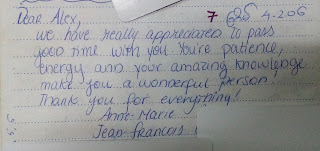 Dear Alex, 7 4-206
we have really appreciated to pass
your time with you. You're patience,
energy and your amazing knowledge
make you a wonderful person!
Thank you for everything!
Anne-Marie
Jean-Francois